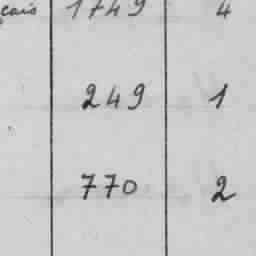 çais 1749 4
249 1
770 2